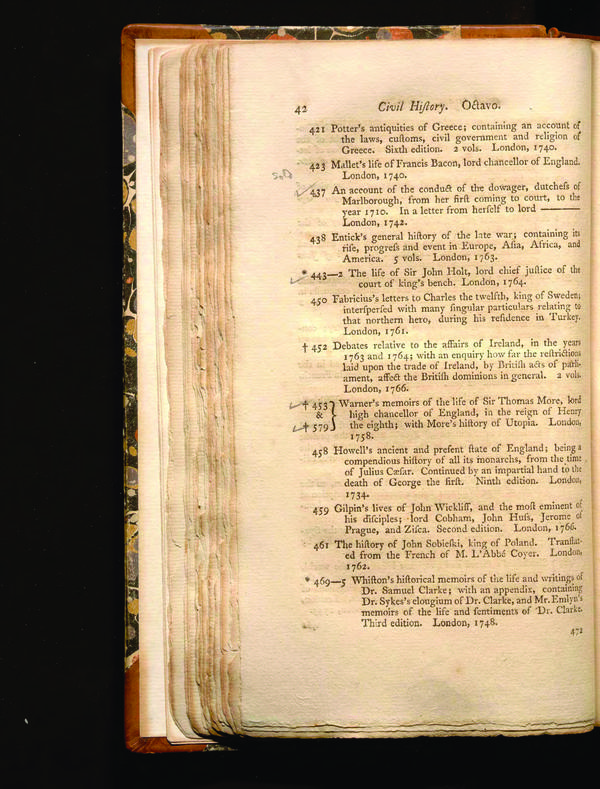 42 Civil Hiſtory. Octavo.
421 Potter's antiquities of Greece; containing an account of
the laws, cuſtoms, civil government and religion of
Greece. Sixth edition. 2 vols. London, 1740.
423 Mallet's life of Francis Bacon, lord chancellor of England.
London, 1740.
437 An account of the conduct of the dowager, dutcheſs of
Marlborough, from her firſt coming to court, to the
year 1710. In a letter from herſelf to lord ———
London, 1742.
438 Entick's general hiſtory of the late war; containing its
riſe, progreſs and event in Europe, Aſia, Africa, and
America. 5 vols. London, 1763.
* 443—2 The life of Sir John Holt, lord chief juſtice of the
court of king's bench. London, 1764.
450 Fabricius's letters to Charles the twelfth, king of Sweden;
interſperſed with many ſingular particulars relating to
that northern hero, during his reſidence in Turkey.
London, 1761.
† 452 Debates relative to the affairs of Ireland, in the years
1763 and 1764; with an enquiry how far the reſtrictions
laid upon the trade of Ireland, by Britiſh acts of parli-
ament, affect the Britiſh dominions in general. 2 vols.
London, 1766.
† 453 & † 579 } Warner's memoirs of the life of Sir Thomas More, lord
high chancellor of England, in the reign of Henry
the eighth; with More's hiſtory of Utopia. London,
1758.
458 Howell's ancient and preſent ſtate of England; being a
compendious hiſtory of all its monarchs, from the time
of Julius Cæſar. Continued by an impartial hand to the
death of George the firſt. Ninth edition. London,
1734.
459 Gilpin's lives of John Wickliff, and the moſt eminent of
his diſciples; lord Cobham, John Huſs, Jerome of
Prague, and Ziſca. Second edition. London, 1766.
461 The hiſtory of John Sobieſki, king of Poland. Tranſlat-
ed from the French of M. L'Abbé Coyer. London,
1762.
* 469—5 Whiſton's hiſtorical memoirs of the life and writings of
Dr. Samuel Clarke; with an appendix, containing
Dr. Sykes's elougium of Dr. Clarke, and Mr. Emlyn's
memoirs of the life and ſentiments of Dr. Clarke.
Third edition. London, 1748.
472